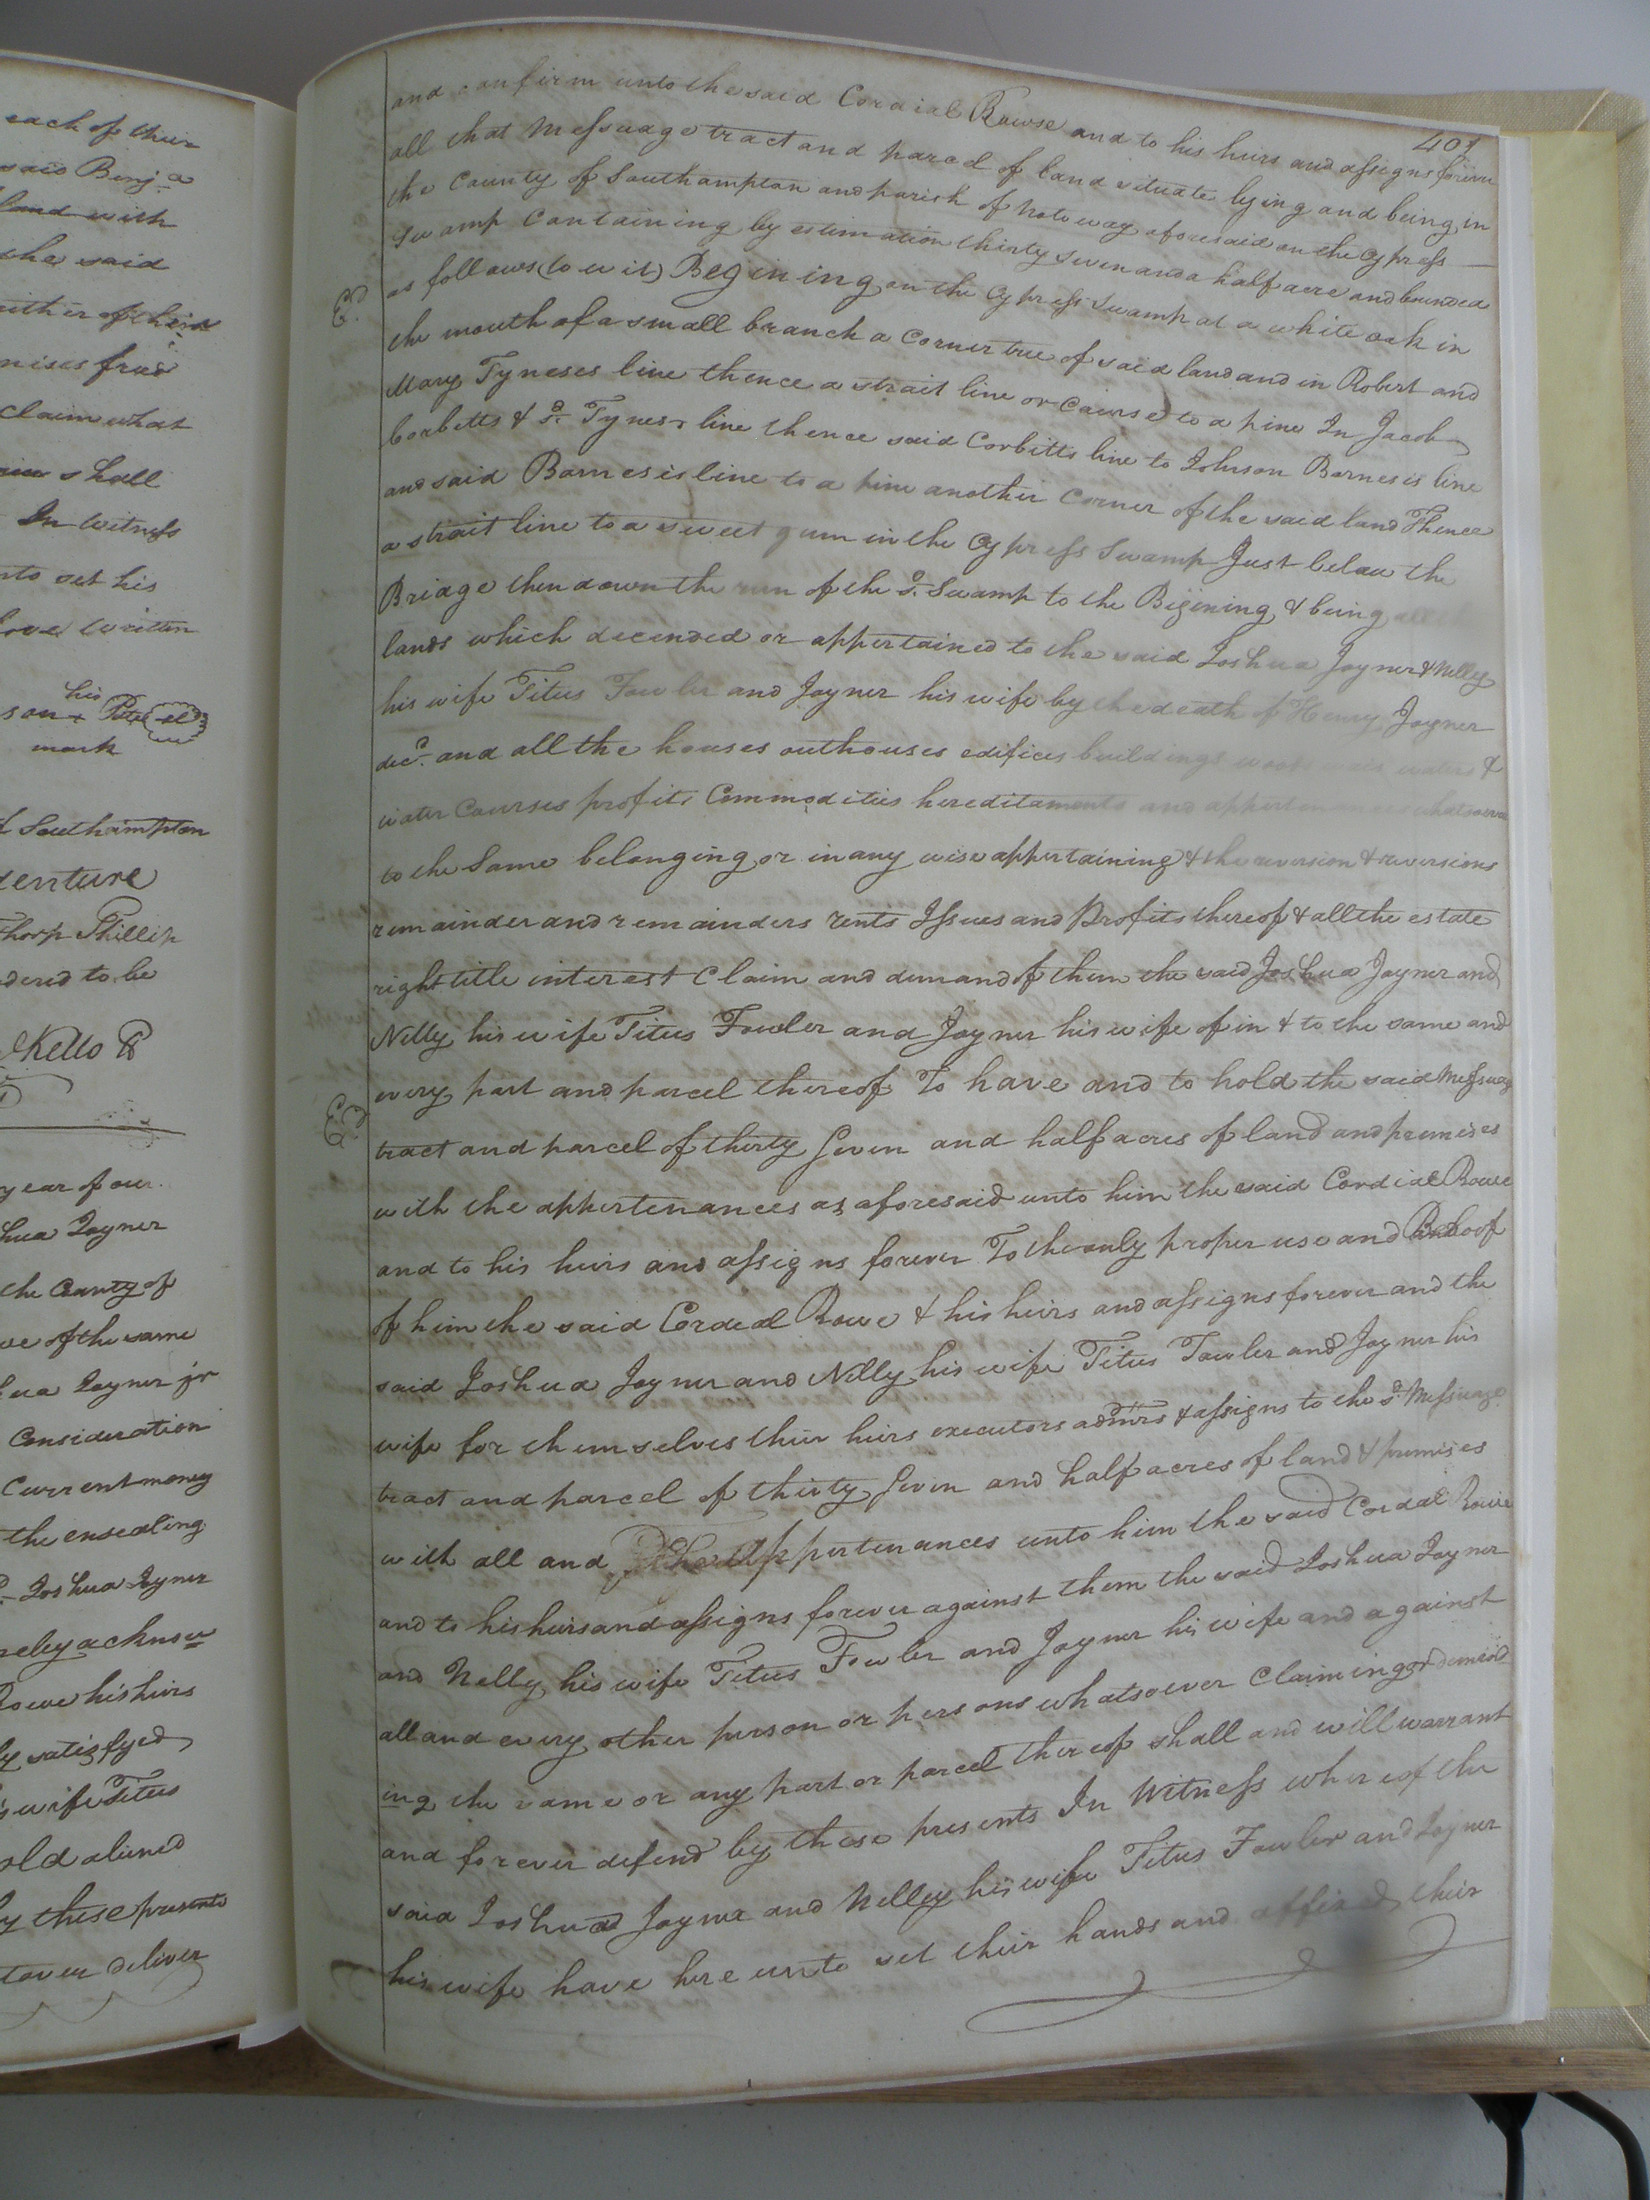 each of their
said Benj.a
land with
she said
either of their
mises free
Claim what
shall
In Witness
nto set his
bove written
his
son + Pete
mark
of Southampton
denture
Thorp Phillip
dered to be
Kello
year of our
hua Joyner
the County of
we of the same
hua Joyner jr
Consideration
Current money
the ensealing
Joshua Joyner
reby acknow
Rowe his heirs
ly satisfyed
s wife Titus
old aliened
by these presents
over deliver
401
and confirm unto the said Cordial Rowse and to his heirs and assigns forever
all that Messuage tract and parcel of land situate lying and being in
the County of Southampton and parish of Notoway aforesaid on the Cypress
Swamp Containing by estimation thirty seven and a half acre and bounded
as follows (to wit) Begining on the Cypress Swamp at a white oak in
the mouth of a small branch a Corner tree of said land and in Robert and
Mary Tyneses line thence a strait line or Cairse to a pine In Jacob
Corbetts & sd. Tyness line thence said Corbitts line to Johnson Barnesis line
and said Barnesis line to a pine another Corner of the said land Thence
a strait line to a sweet gum in the Cypress Swamp Just below the
Bridge then down the run of the sd. Swamp to the Begining & being all
lands which decended or appertained to the said Joshua Joyner & Nelly
his wife Titus Fowler and Joyner his wife by the death of Henry Joyner
decd. and all the houses outhouses edifices buildings woods water &
water Courses profits Commodities hereditaments and whatsoever
to the Same belonging or in any wise appertaining & the reversion & reversions
remainder and remainders rents Issues and Profits thereof & all the estate
right title interest Claim and demand of them the said Joshua Joyner and
Nelly his wife Titus Fowler and Joyner his wife of in & to the same and
every part and parcel thereof To have and to hold the said Messuag
tract and parcel of thirty Seven and half acres of land and premises
with the appertenances as aforesaid unto him the said Cordial Rowe
and to his heirs and assigns forever To the only proper use and Behoof
of him the said Cordeal Rowe & his heirs and assigns forever and the
said Joshua Joyner and Nelly his wife Titus Fowler and Joyner his
wife for themselves their heirs executors admrs & assigns to the sd. Messuage
tract and parcel of thirty Seven and half acres of land & premises
with all and the Appertenances unto him the said Cordal Rowe
and to his heirs and assigns forever against them the said Joshua Joyner
and Nelly his wife Titus Fowler and Joyner his wife and against
all and every other person or persons whatsoever Claiming or demand
ing the same or any part or parcel thereof shall and will warrant
and forever defend by these presents In Witness whereof the
said Joshua Joyner and Nelley his wife Titus Fowler and Joyner
his wife have hereunto set their hands and affixed their